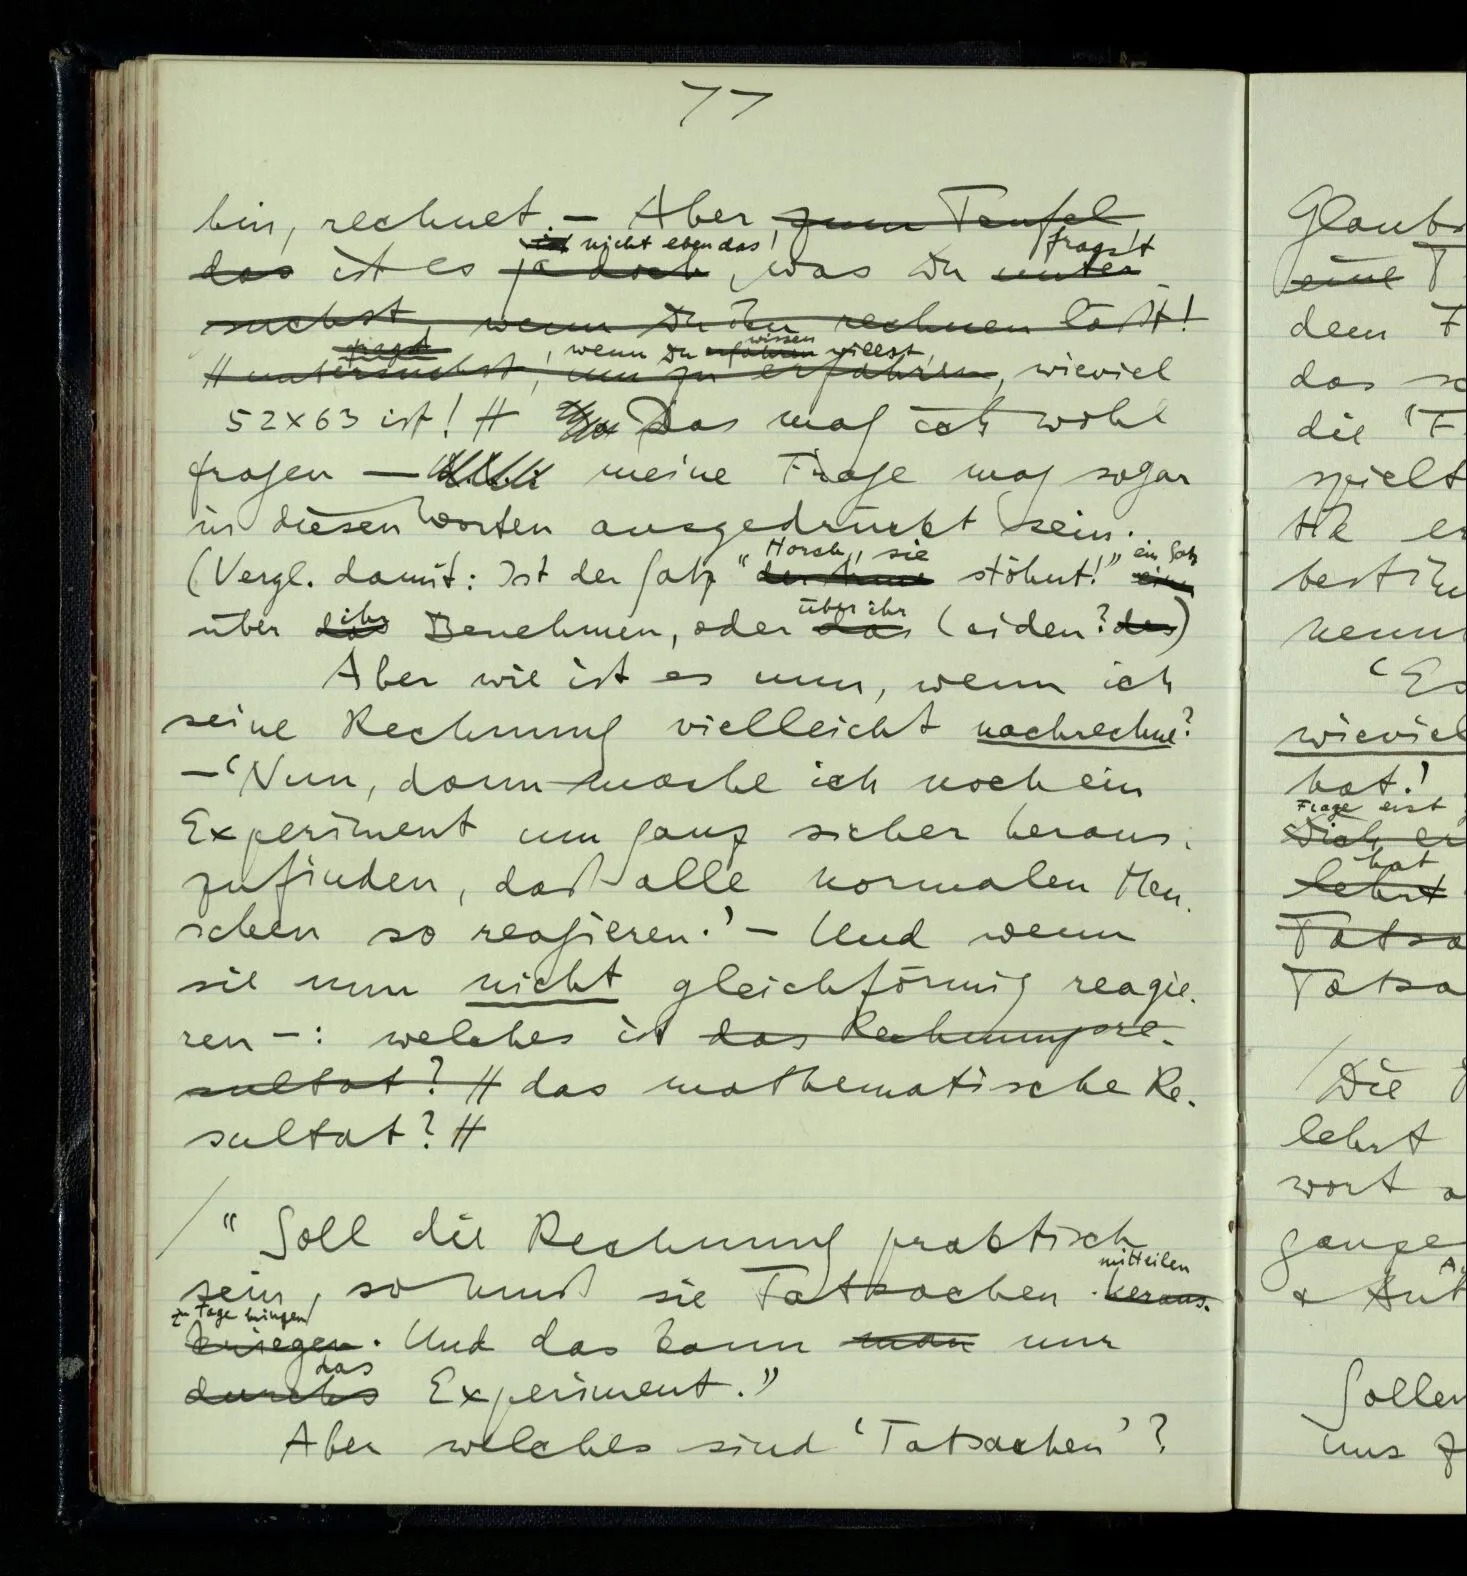 77
bin, rechnet. – Aber, zum Teufel
ist nicht eben das! fragst
das ist es ja doch, was Du unter
suchst, wenn Du ihn rechnen läßt!
fragst , wenn Du erfahren wissen willst,
// untersuchst, um zu erfahren, wieviel
52×63 ist! // Das mag ich wohl
fragen — meine Frage mag sogar
in diesen Worten ausgedrückt sein.
Horch, sie ein Satz
(Vergl. damit: Ist der Satz “der Arme stöhnt!” ein
ihr über ihr
über das Benehmen, oder das Leiden? des)
Aber wie ist es nun, wenn ich
seine Rechnung vielleicht nachrechne?
– ‘Nun, dann mache ich noch ein
Experiment um ganz sicher heraus-
zufinden, daß alle normalen Men-
schen so reagieren.’ – Und wenn
sie nun nicht gleichförmig reagie-
ren –: welches ist das Rechnungsre-
sultat? // das mathematische Re-
sultat? //
/ “Soll die Rechnung praktisch
mitteilen
sein, so muß sie Tatsachen heraus-
zu Tage bringen
kriegen. Und das kann man nur
das
durchs Experiment.”
Aber welches sind ‘Tatsachen’?
Glaub
eine
dem
das
die
spielt
bestim
nenn
‘Es
wieviel
hat!
Frage erst
Dich er
hat
lehrt
Tatsa
Tatsa
/ Die
lehrt
wort a
ganze
Sollen
uns z